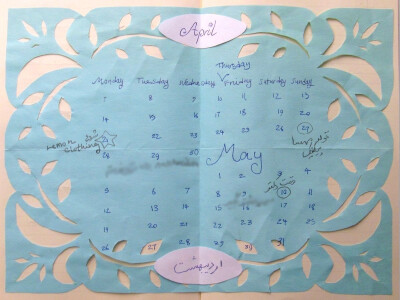 April
Thursday
Monday Tuesday Wednesday Friday Saturday Sunday
7 8 9 10 11 12 13
14 15 16 17 18 19 20
21 22 23 24 25 26 27
28 29 30
May
1 2 3 4
5 6 7 8 9 10 11
12 13 14 15 16 17 18
19 20 21 22 23 24 25
26 27 28 29 30 31
اردیبهشت